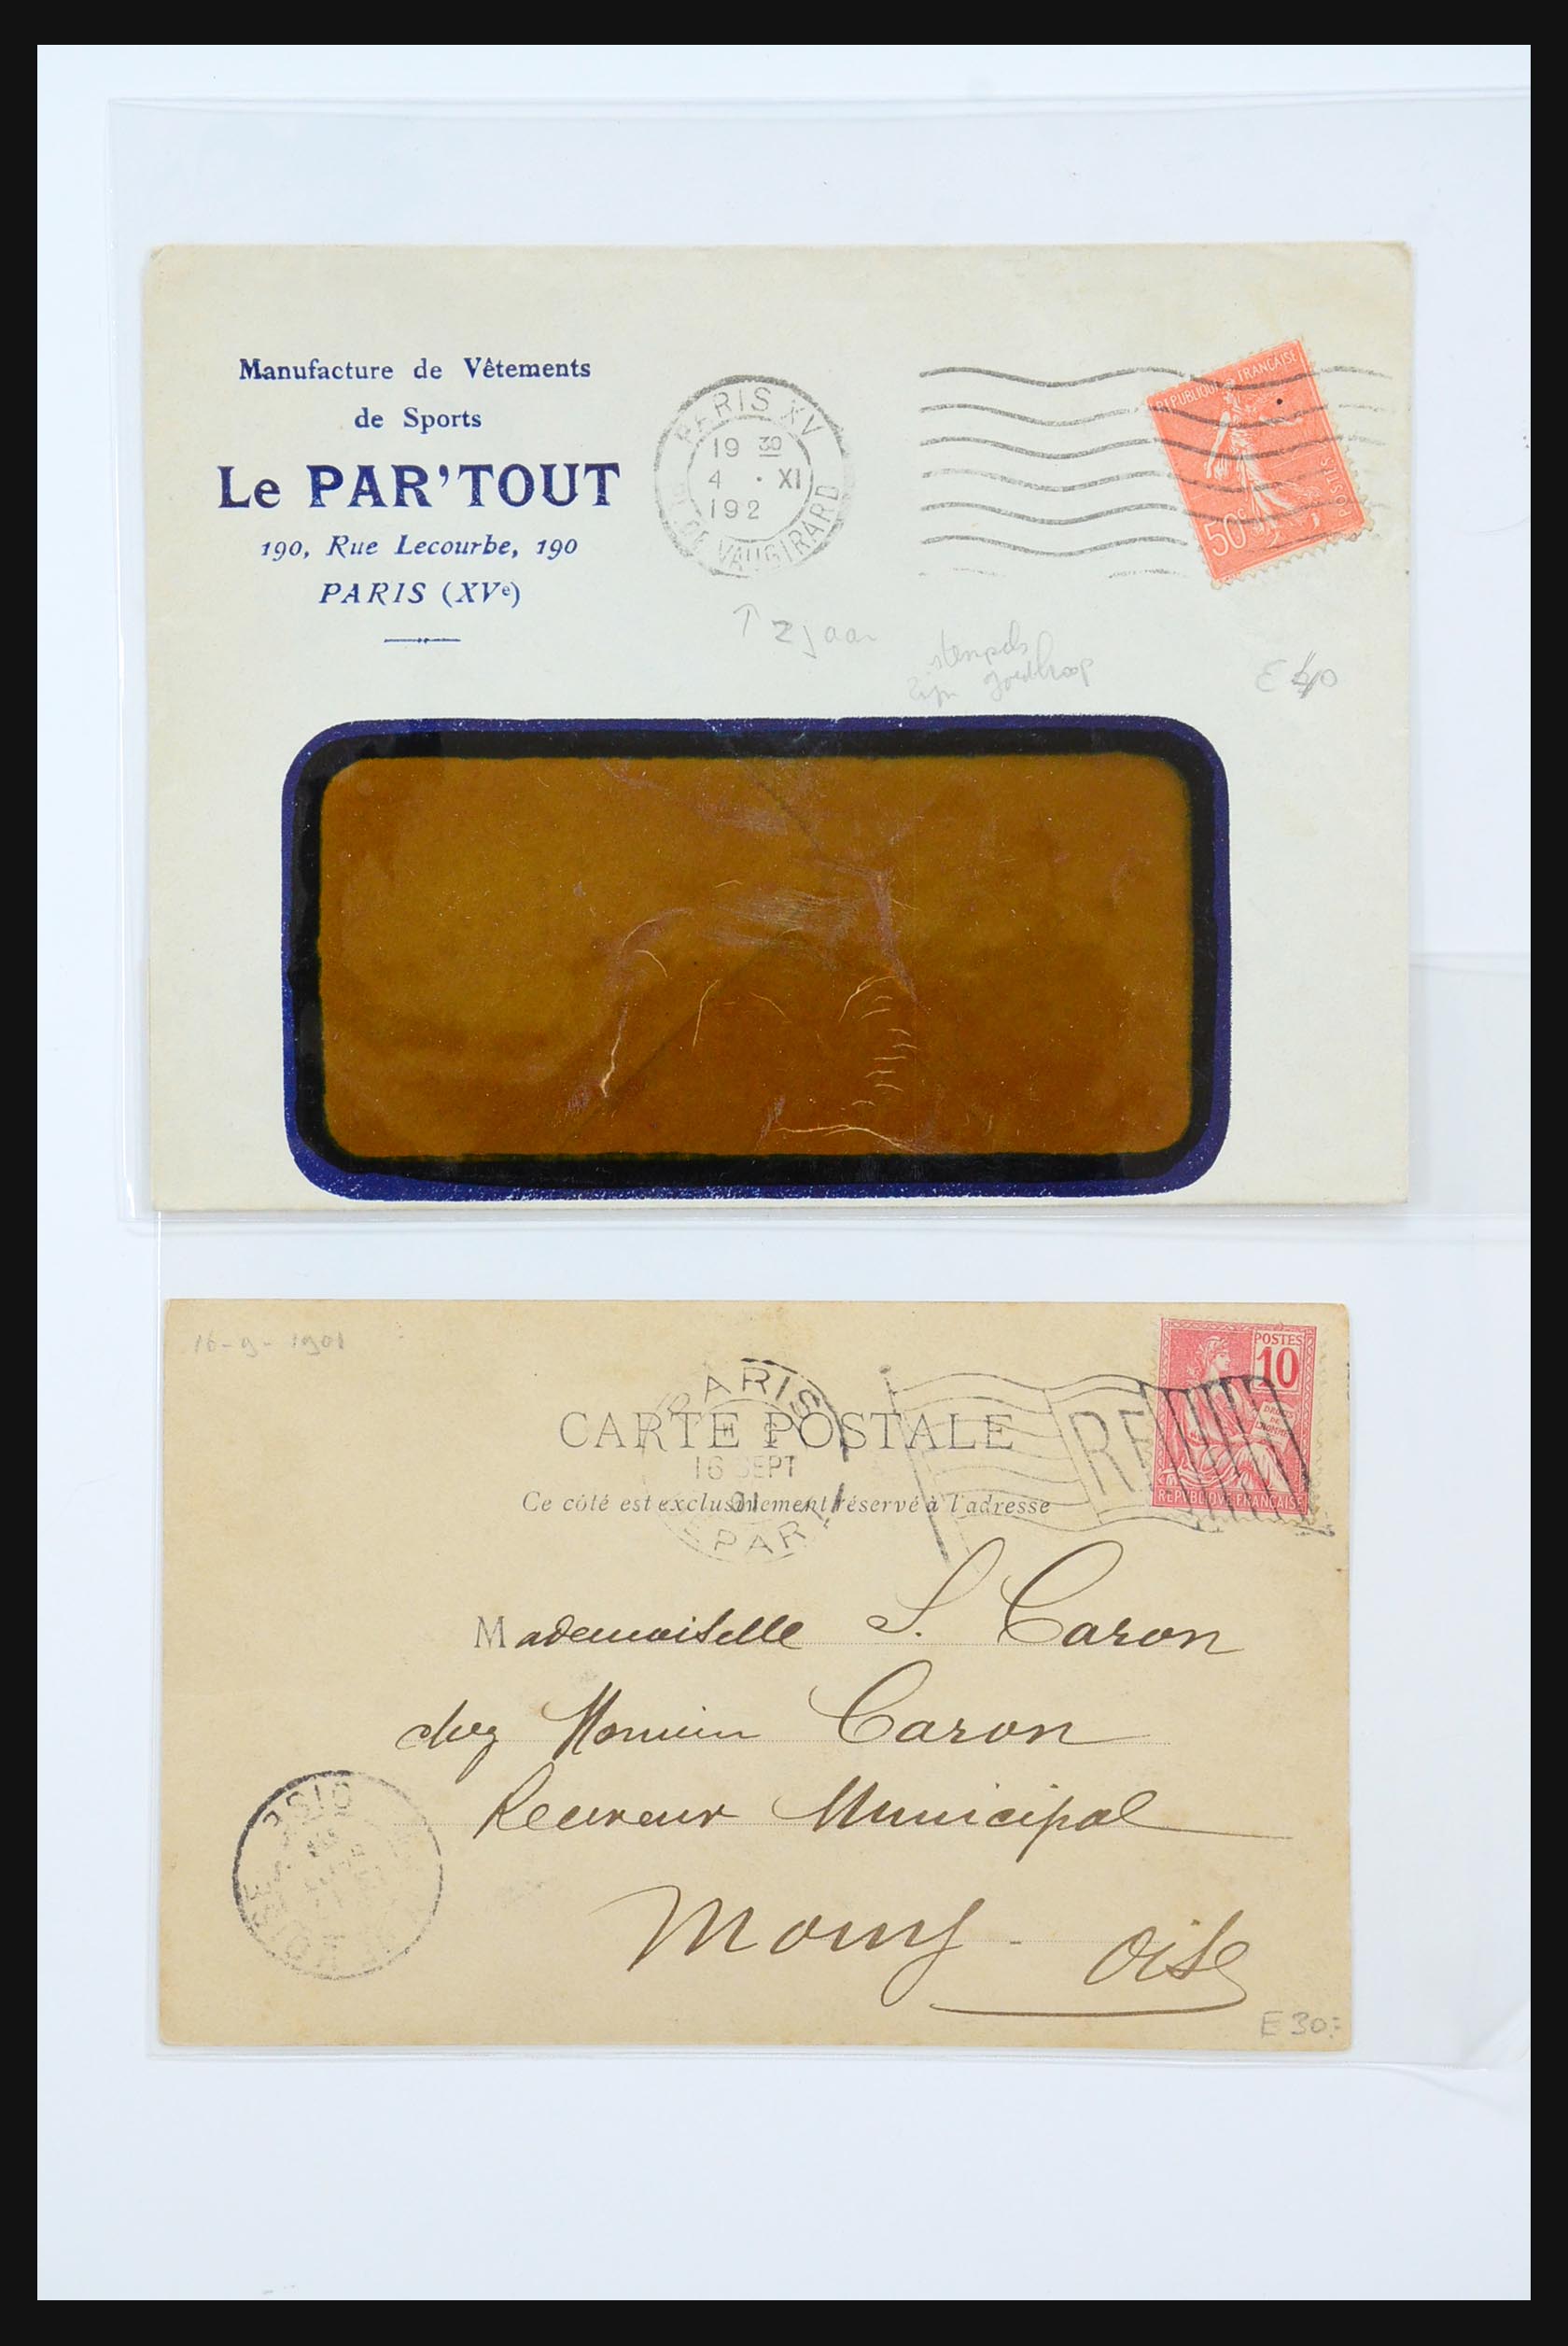 Manufacture de Vêtements
de Sports
Le PAR'TOUT
190, Rue Lecourbe, 190
PARIS (XVe)
PARIS XV
19 30
4 · XI
192
VAUGIRARD
REPUBLIQUE FRANÇAISE
POSTES
50c
↑ zjaar
stempels
zijn goedkoop
E 40
16-9-1901
POSTES
10
DROITS DE L'HOMME
REPUBLIQUE FRANÇAISE
PARIS
16 SEPT
01
PARI
RF
CARTE POSTALE
Ce côté est exclusivement réservé à l'adresse
Mademoiselle S. Caron
chez Monsieur Caron
Receveur Municipal
Mouy - Oise
OISE
E 30: